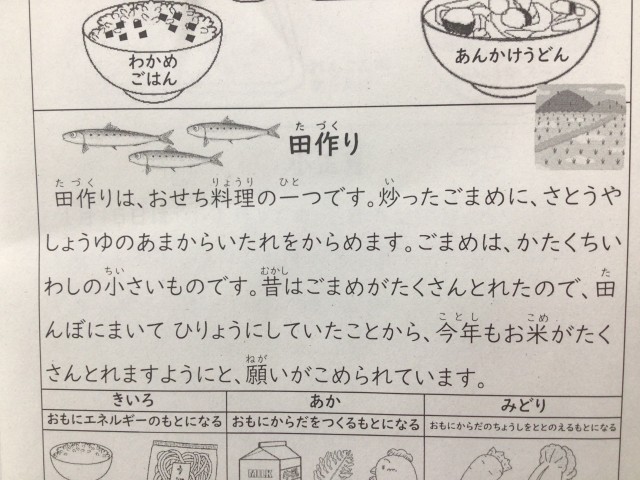 わかめ
ごはん
あんかけうどん
田作り
たづく
田作りは、おせち料理の一つです。炒ったごまめに、さとうや
たづく りょうり ひと い
しょうゆのあまからいたれをからめます。ごまめは、かたくちい
わしの小さいものです。昔はごまめがたくさんとれたので、田
ちい むかし た
んぼにまいて ひりょうにしていたことから、今年もお米がたく
ことし こめ
さんとれますようにと、願いがこめられています。
ねが
きいろ
あか
みどり
おもにエネルギーのもとになる
おもにからだをつくるもとになる
おもにからだのちょうしをととのえるもとになる
MILK